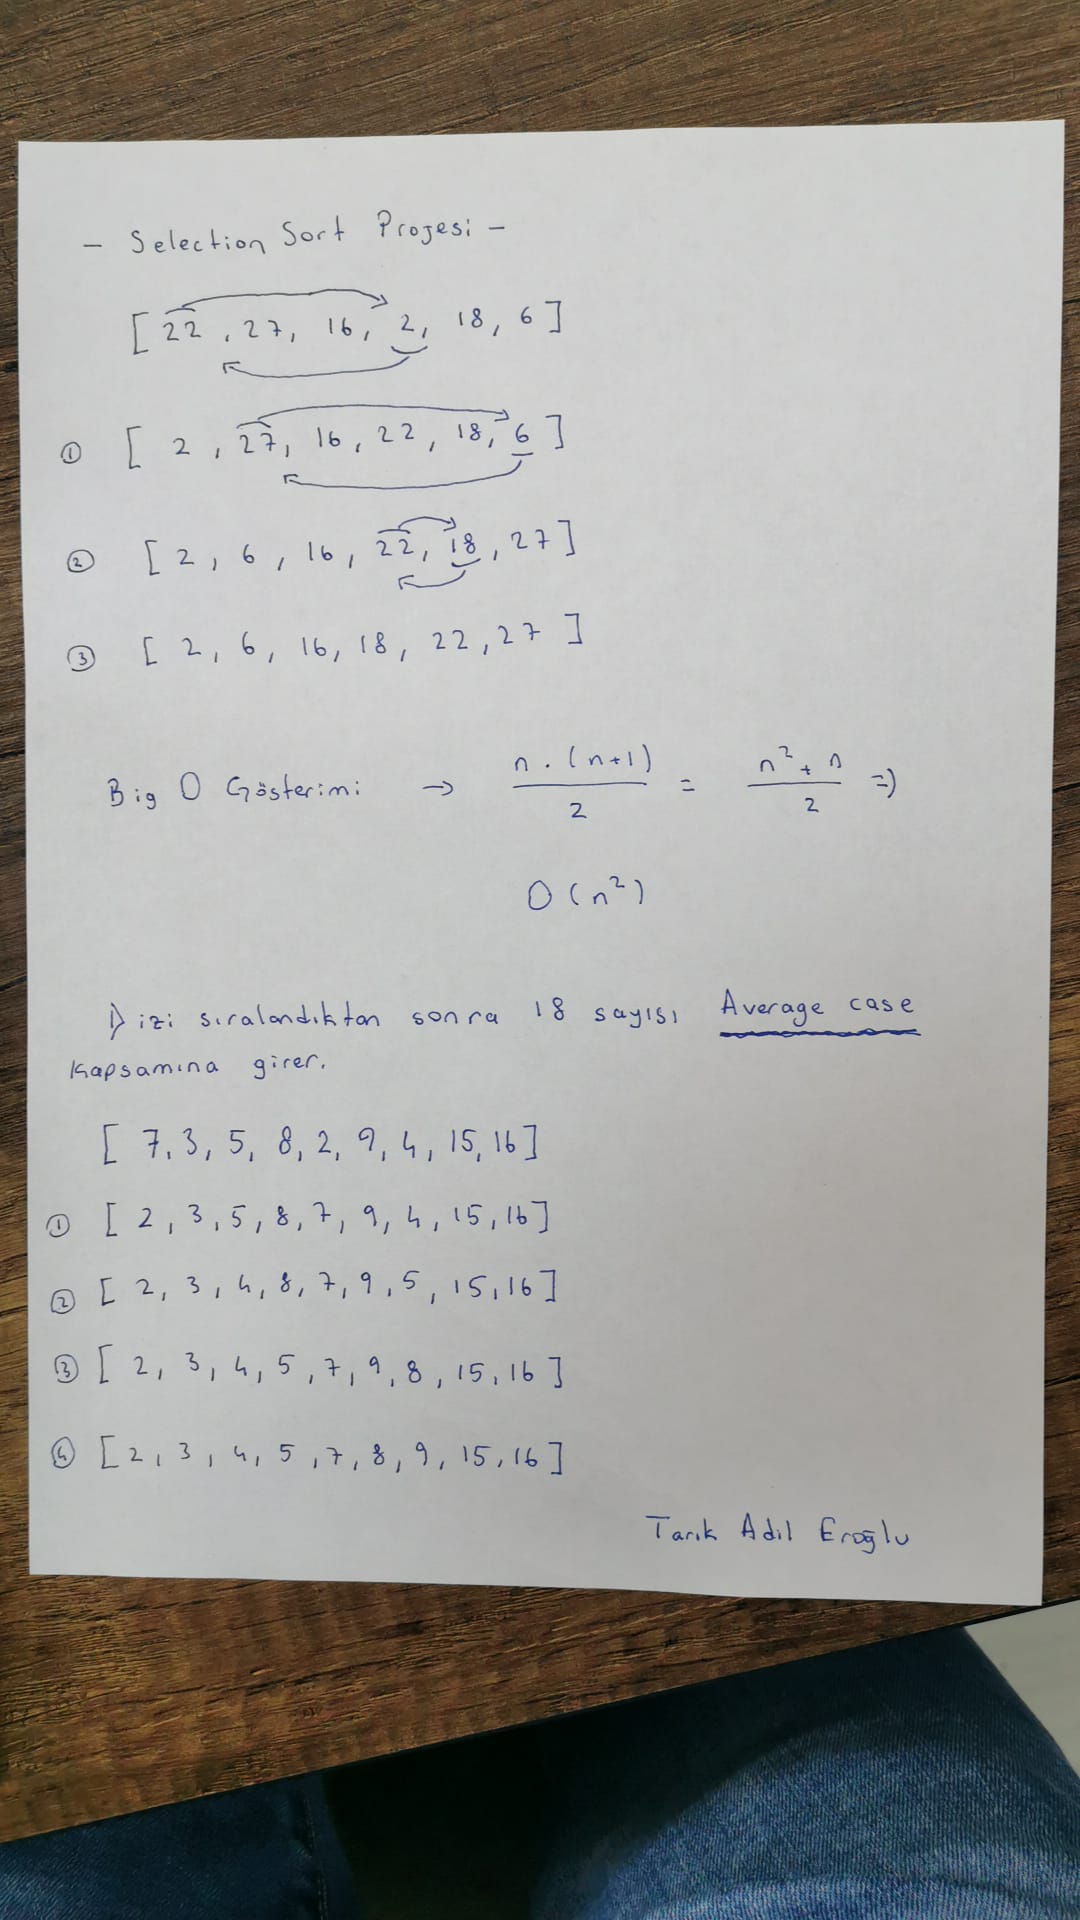 - Selection Sort Projesi -
[ 22, 27, 16, 2, 18, 6 ]
① [ 2, 27, 16, 22, 18, 6 ]
② [ 2, 6, 16, 22, 18, 27 ]
③ [ 2, 6, 16, 18, 22, 27 ]
Big O Gösterimi → n . (n+1) / 2 = n² + n / 2 =)
O (n²)
Dizi sıralandıktan sonra 18 sayısı Average case
kapsamına girer.
[ 7, 3, 5, 8, 2, 9, 4, 15, 16 ]
① [ 2, 3, 5, 8, 7, 9, 4, 15, 16 ]
② [ 2, 3, 4, 8, 7, 9, 5, 15, 16 ]
③ [ 2, 3, 4, 5, 7, 9, 8, 15, 16 ]
④ [ 2, 3, 4, 5, 7, 8, 9, 15, 16 ]
Tarık Adil Eroğlu